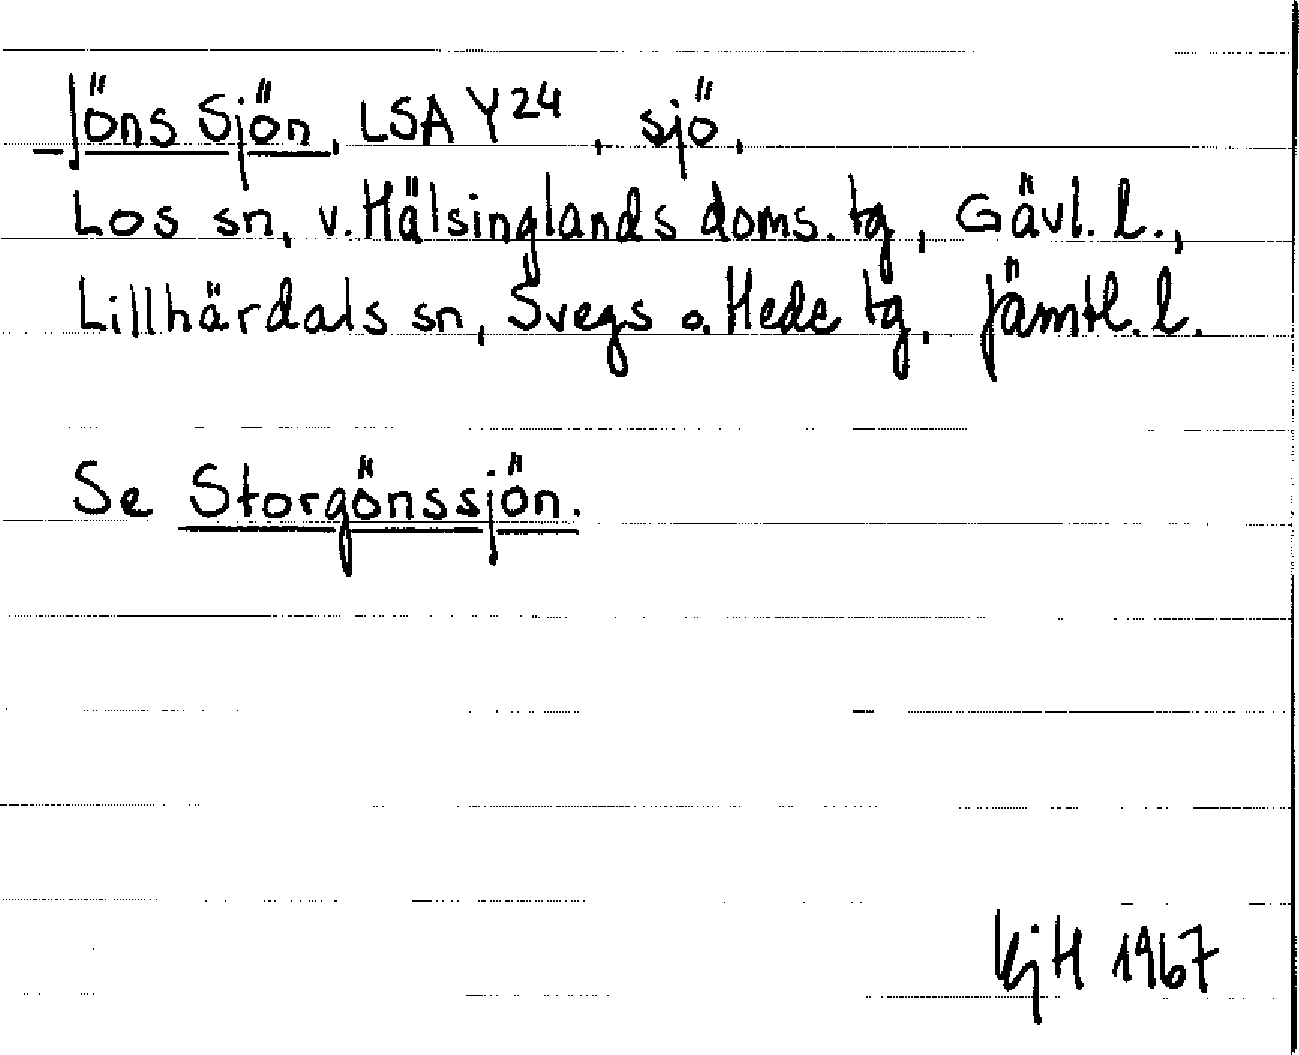 Jöns Sjön, LSA Y24, sjö,
Los sn, v. Hälsinglands doms. tg, Gävl. l.,
Lillhärdals sn, Svegs o. Hede tg, Jämtl. l.
Se Storgönssjön.
KjH 1967